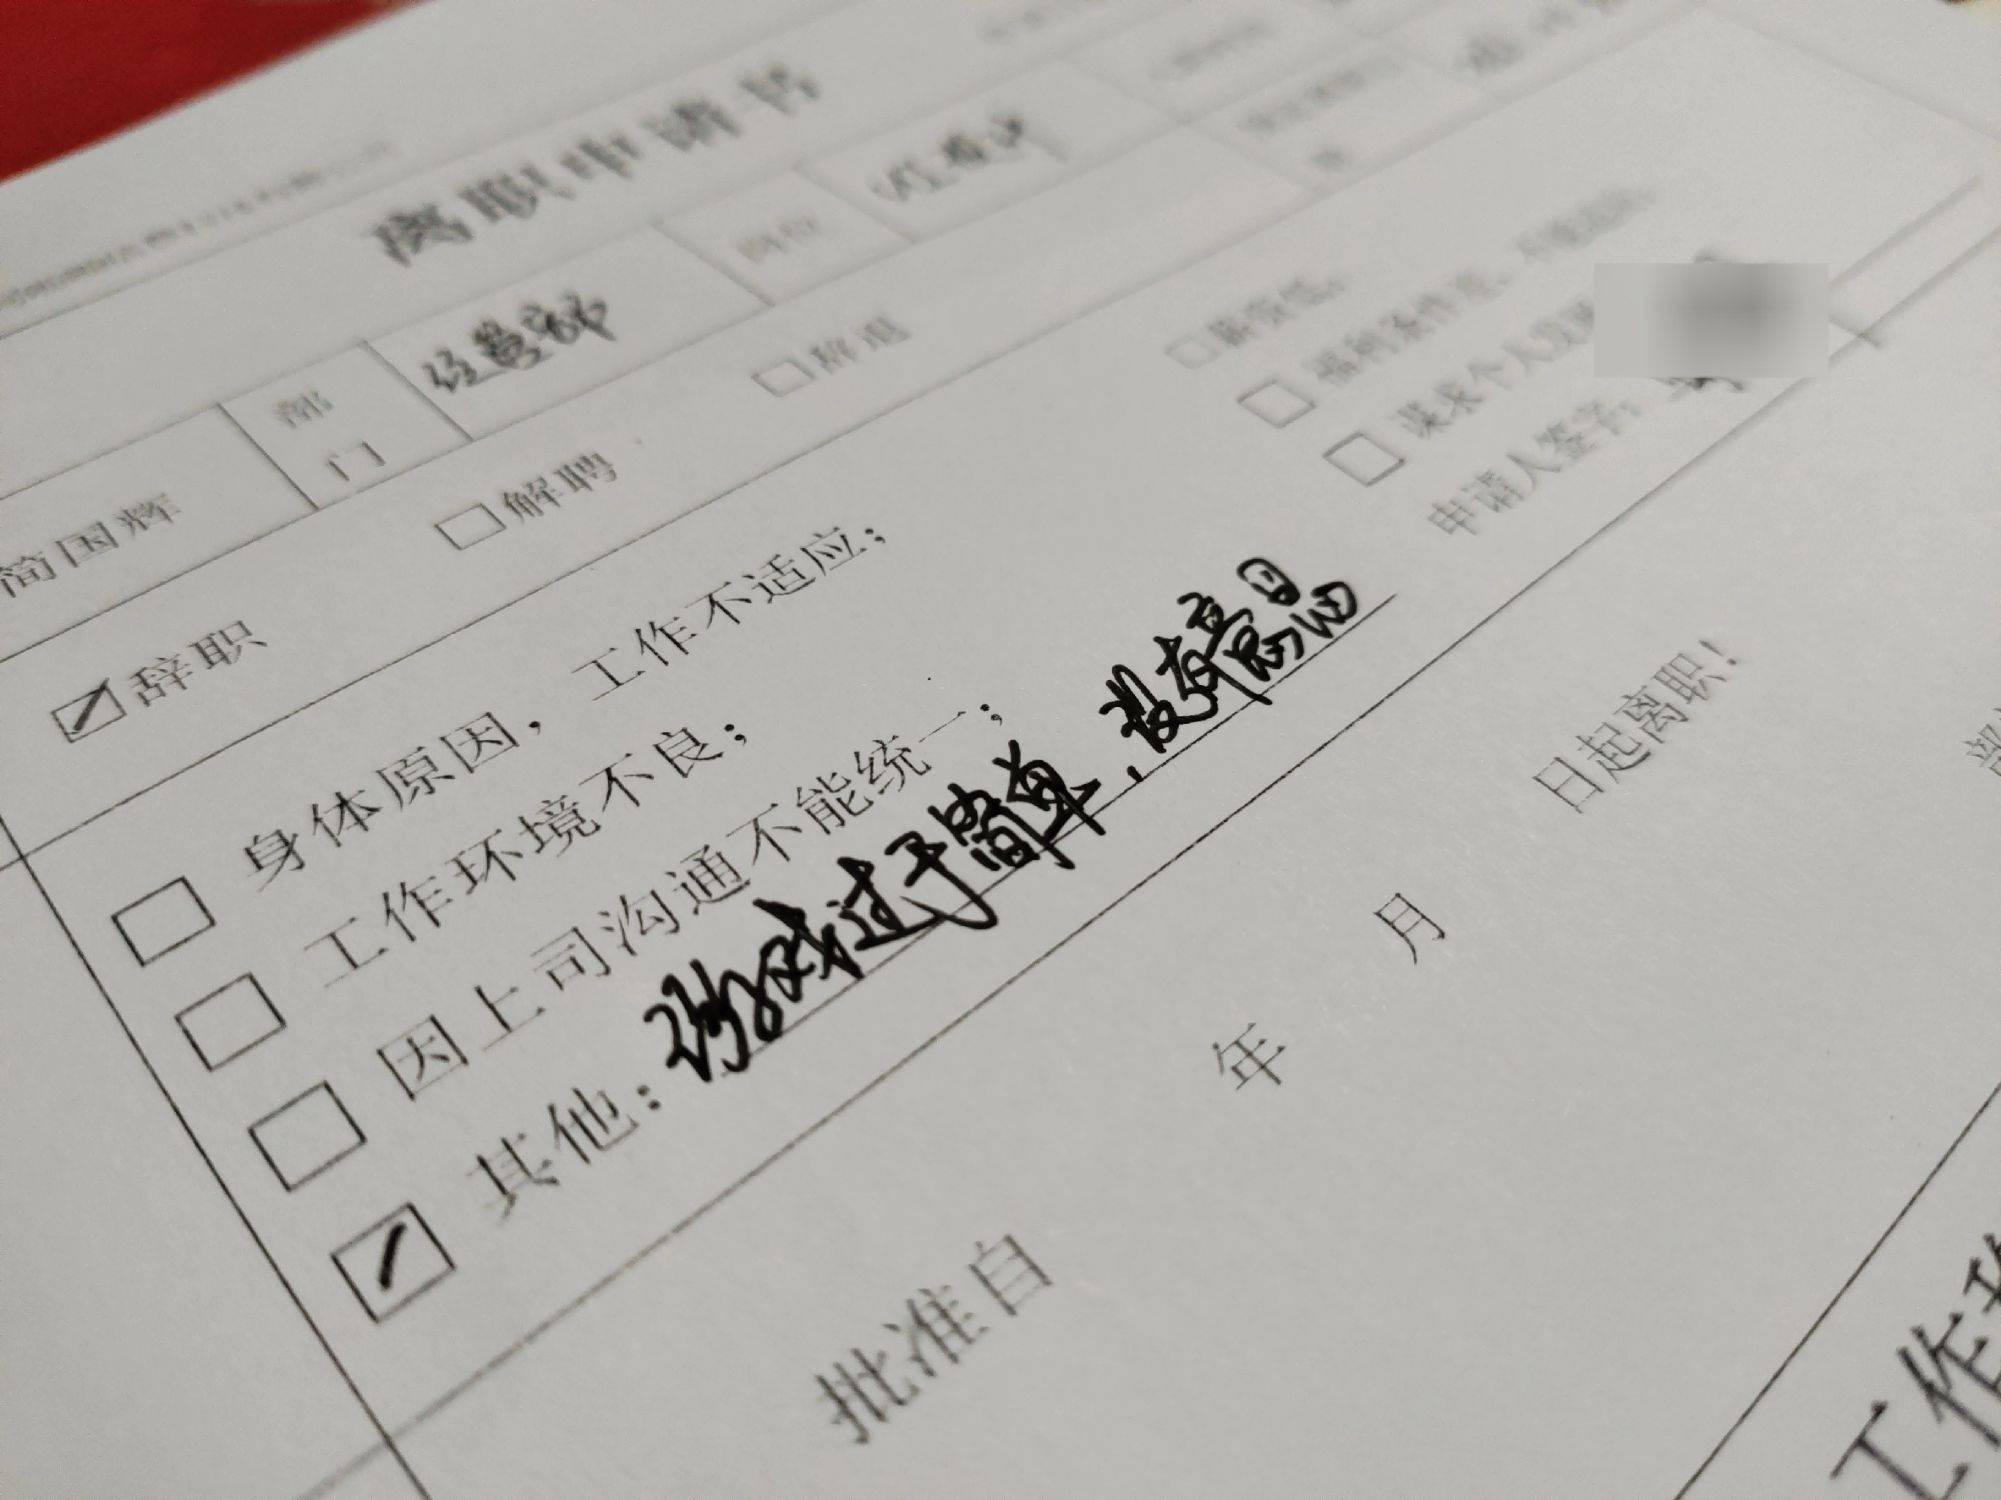 离职申请书
简国辉 部门 经营部 岗位
辞职 解聘 辞退
身体原因，工作不适应；
工作环境不良；
因上司沟通不能统一；
其他：游戏过于简单，没有意思
薪资低。
福利条件差，不能适应。
谋求个人发展
申请人签字：
批准自 年 月 日起离职！
部
工作